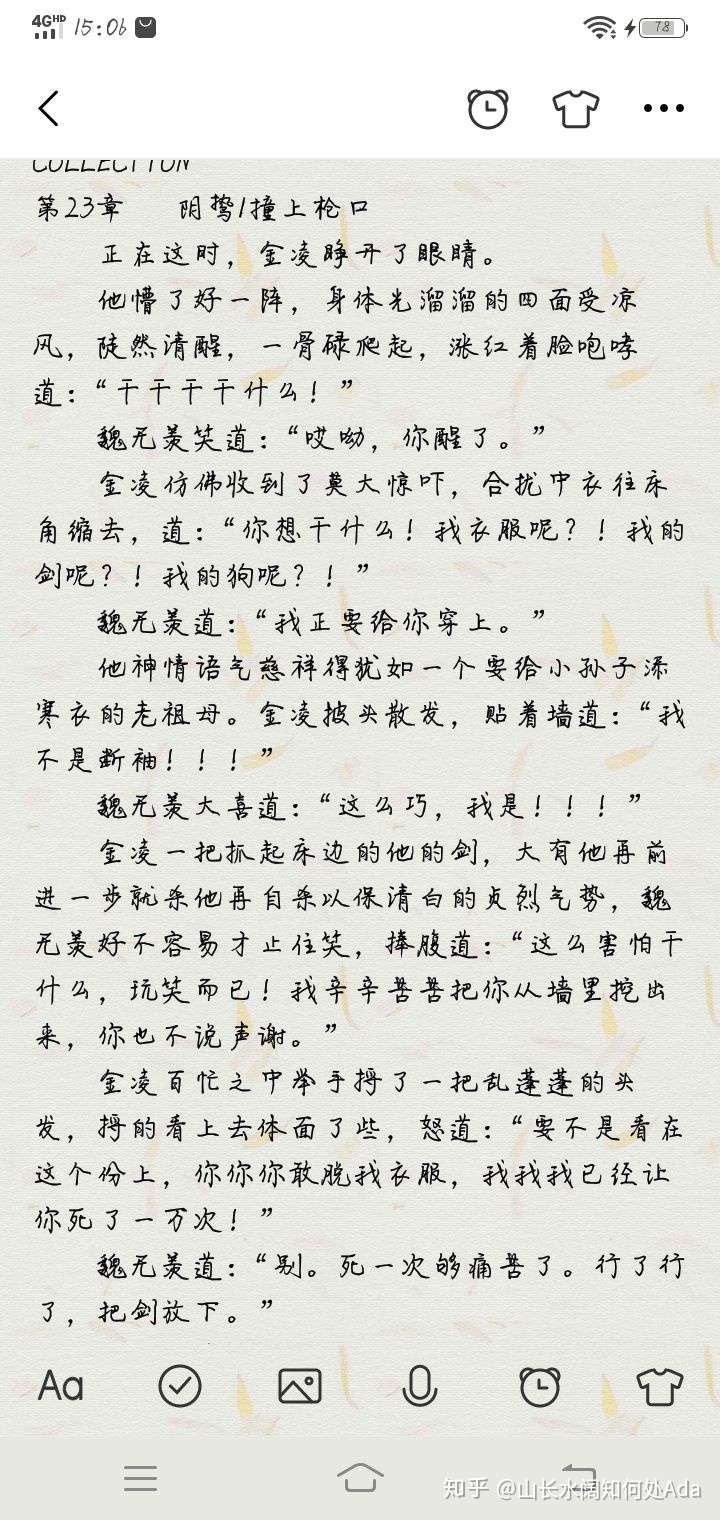 4G HD 15:06 78
COLLECTION
第23章 阴鸷1撞上枪口
正在这时，金凌睁开了眼睛。
他懵了好一阵，身体光溜溜的四面受凉
风，陡然清醒，一骨碌爬起，涨红着脸咆哮
道：“干干干干什么！”
魏无羡笑道：“哎呦，你醒了。”
金凌仿佛收到了莫大惊吓，合拢中衣往床
角缩去，道：“你想干什么！我衣服呢？！我的
剑呢？！我的狗呢？！”
魏无羡道：“我正要给你穿上。”
他神情语气慈祥得犹如一个要给小孙子添
寒衣的老祖母。金凌披头散发，贴着墙道：“我
不是断袖！！！”
魏无羡大喜道：“这么巧，我是！！！”
金凌一把抓起床边的他的剑，大有他再前
进一步就杀他再自杀以保清白的贞烈气势，魏
无羡好不容易才止住笑，捧腹道：“这么害怕干
什么，玩笑而已！我辛辛苦苦把你从墙里挖出
来，你也不说声谢。”
金凌百忙之中举手捋了一把乱蓬蓬的头
发，捋的看上去体面了些，怒道：“要不是看在
这个份上，你你你敢脱我衣服，我我我已经让
你死了一万次！”
魏无羡道：“别。死一次够痛苦了。行了行
了，把剑放下。”
Aa
知乎 @山长水阔知何处Ada